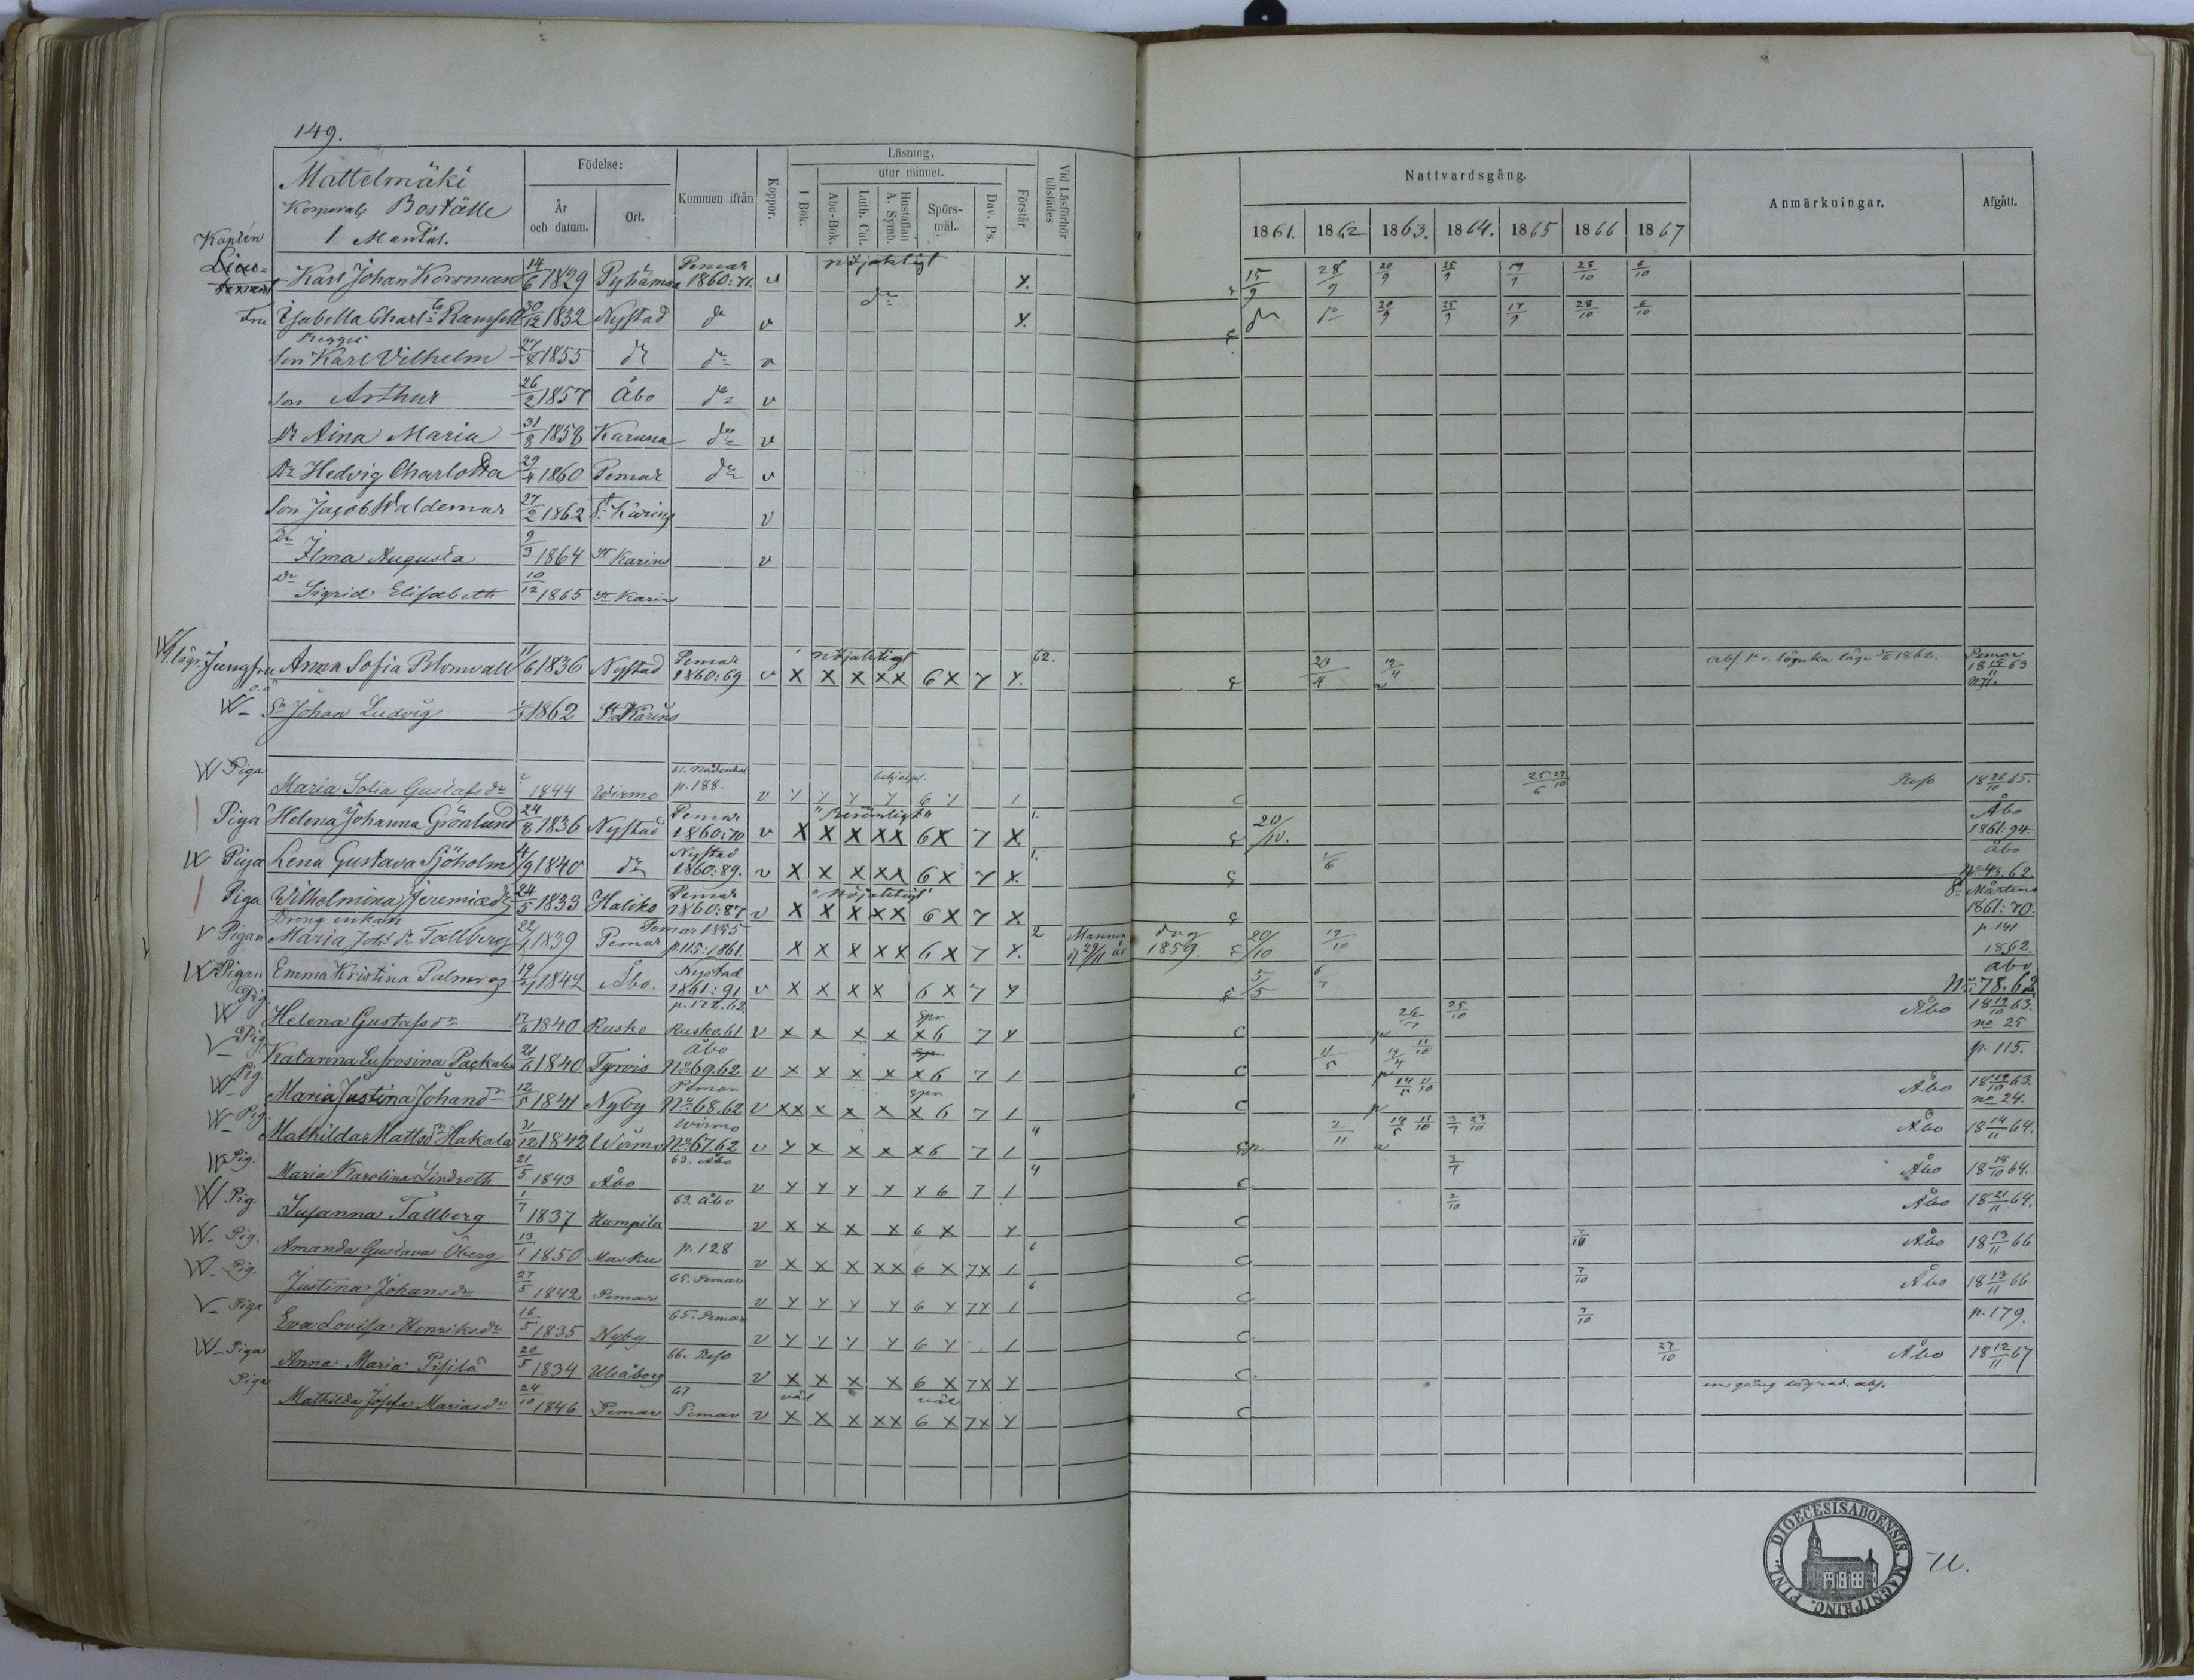 149.
Mattelmäki
Korporals Boställe
1 Mantal.
Födelse:
År och datum.
Ort.
Kommen ifrån
Koppor.
Läsning,
utur minnet.
I Bok.
Abc-Bok.
Luth. Cat.
Hustaflan A. Symb.
Spörs-mål.
Dav. Ps.
Förstår
Vid Läsförhör tillstädes
Nattvardsgång.
1861. 1862 1863. 1864. 1865 1866 1867
Anmärkningar.
Afgått.
Kapten Karl Johan Korsman 14/6 1829 Pyhämaa Pemar 1860:71. v nöjaktigt Y. 15/9 28/9 20/9 25/9 17/9 28/10 6/10
Fru Isabella Charl:a Ramsell 30/12 1832 Nystad do v do Y. do do 20/9 25/9 17/9 28/10 6/10
Son Karl Vilhelm 27/8 1855 do do v
Son Arthur 26/2 1857 Åbo do v
Dr Aina Maria 31/8 1858 Karuna do v
Dr Hedvig Charlotta 29/4 1860 Pemar do v
Son Jacob Waldemar 27/2 1862 St Karins v
Dr Ilma Augusta 9/3 1864 St Karins v
Dr Sigrid Elisabeth 10/12 1865 St Karins
Jungfru Anna Sofia Blomvall 11/6 1836 Nystad Pemar 1860:69 v X X X XX 6 X 7 Y. nöjaktigt 62. 20/4 19/4 Pemar 18 63
W Sn Johan Ludvig 1862 St Karins
W Piga Maria Sofia Gustafsdr 1844 Wirmo 61. Nådendal p. 188. v Y Y Y Y 6 Y 1 25/6 29/10 Reso 18 26/10 65.
Piga Helena Johanna Grönlund 24/8 1836 Nystad Pemar 1860:70 v X X X XX 6X 7 X "Berömligt" 1. 20/10. Åbo 1861:94
Piga Lena Gustava Sjöholm 4/9 1840 do Nystad 1860:89. v X X X XX 6 X 7 X. 1. 1/6 Åbo No 43.62.
Piga Wilhelmina Jeremiædr 24/5 1833 Haliko Pemar 1860:87 v X X X XX 6X 7 X. "Nöjaktigt" St Mårtens 1861:70.
Dreng enkan
V Pigan Maria Johsdr Tallberg 22/4 1839 Pemar Pemar 1855 p.115:1861. X X X XX 6 X 7 Y. 2 Mannen dog d 29/11 1859. 20/10 19/10 p. 141 1862.
W Pigan Emma Kristina Palmros 19/4 1842 Åbo. Nystad 1861:91 v X X X X 6 X 7 Y 5/5 Åbo No 78.62
W Pig. Helena Gustafsdr 1840 Rusko p.172.62. Rusko.61 v X X X X X6 7 Y Spn 26/7 25/10 Åbo 18 19/10 63. no 25
V Pig. Katarina Eufrosina Packalen 21/6 1840 Tyrvis Åbo No 69.62 v X X X X X6 7 1 11/5 19/4 11/10 p. 115.
W Pig. Maria Justina Johandr 12/5 1841 Nyby Pemar No 68.62 v XX X X X X 6 7 1 Spn 14/5 11/10 Åbo 18 19/10 63. no 24.
W Pig. Mathilda Mattsdr Hakala 21/12 1842 Wirmo Wirmo No 67.62 v Y X X X X6 7 1 4 2/11 14/5 11/10 3/7 23/10 Åbo 18 14/11 64.
W Pig. Maria Karolina Lindroth 21/5 1843 Åbo 63. Åbo v Y Y Y Y Y 6 7 1 4 3/7 Åbo 18 18/10 64.
W Pig. Susanna Tallberg 1/7 1837 Humpila 63. Åbo v X X X X 6 X Y 2/10 Åbo 18 21/11 64.
W. Pig. Amanda Gustava Öberg 13/1 1850 Masku p. 128 v X X X XX 6 X 7X 1 6 7/10 Åbo 18 13/11 66
W. Pig. Justina Johansdr 27/5 1842 Pemar 65. Pemar v Y Y Y Y 6 Y 7Y 1 6 7/10 Åbo 18 13/11 66
V Piga Eva Lovisa Henriksdr 16/5 1835 Nyby 65. Pemar v Y Y Y Y 6 Y 1 7/10 p. 179.
W Piga Anna Maria 20/5 1834 Uleåborg 66. Reso v X X X X 6 X 7X Y 27/10 Åbo 18 12/11 67
Piga Mathilda Josefa Mariasdr 24/10 1846 Pemar 67 Pemar v X X X XX 6 X 7X Y väl väl
DIOECESIS ABOENSIS. MAGNI PRINC. FINL.